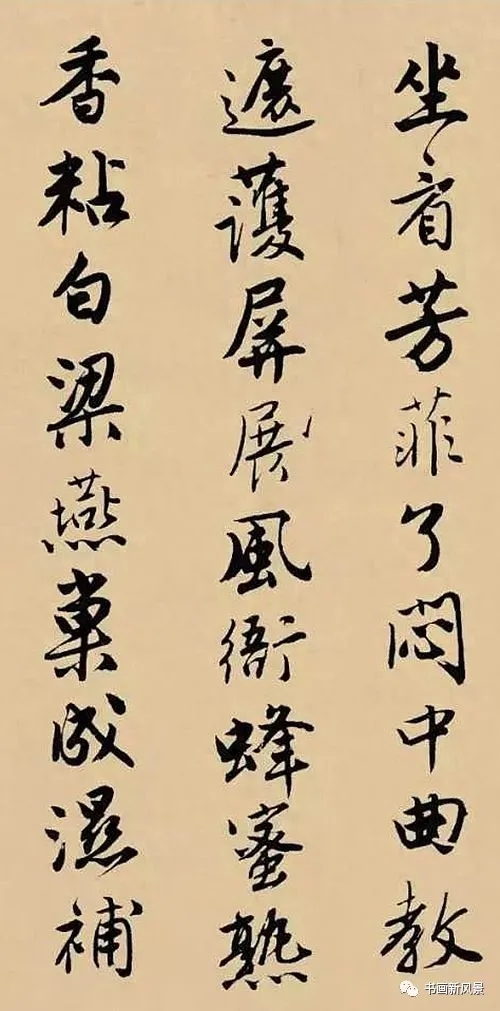 坐看芳菲了悶中曲教
遮護屏展風衙蜂蜜熟
香粘白梁燕巢成濕補
书画新风景